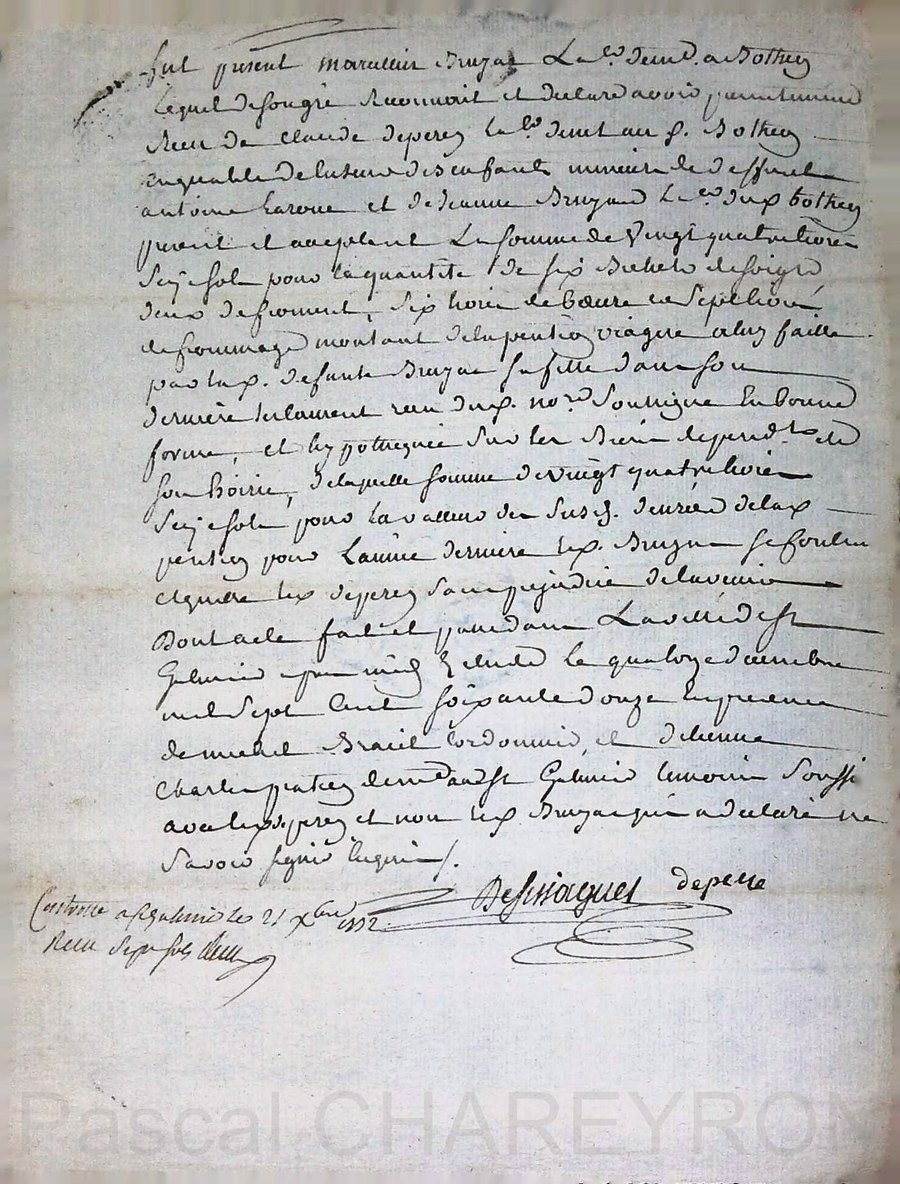 fut présent marcellin Bruyas La.er dem.t a Bothéo
Lequel de son gré Reconnoit et declare avoir presentement
Recu de Claude deperey La.er demt au p. Bothéo
En qualité de des enfants mineurs de deffunt
antoine et de Jeanne Bruyas du p. bothéo
present et acceptant La somme de Vingt quatre livres
Seize sols pour la quantité de six Bichets de soigle
deux de froment, six livres de beure et Sept livres
de frommage montant de la pention viagere a luy faitte
par la p. defunte Bruyas sa fille dans son
dernier testament recu du p. no.re Soussigné En bonne
forme, et hypothequée Sur les Biens de
son hoirie, de laquelle somme de vingt quatre livres
Seize sols pour la valleur des Susd. denrées de la p.
pention pour L'année derniere le p. Bruyas se contente
et quitte le p. deperey Sans prejudice de l'avenir
Dont acte fait et passé dans La ville de St
Galmier le quatorze decembre
mil Sept Cent soixante douze En presence
de michel Cordonnier, et d'etienne
Charles praticien dem.t aud St Galmier temoins Soussi
avec le p. deperey et non le p. Bruyas qui a declaré ne
Savoir signer Enquis /.
deperre
Controllé a St Galmier le 21 Xbre 1772
Recu Sept sols
Pascal CHAREYRON